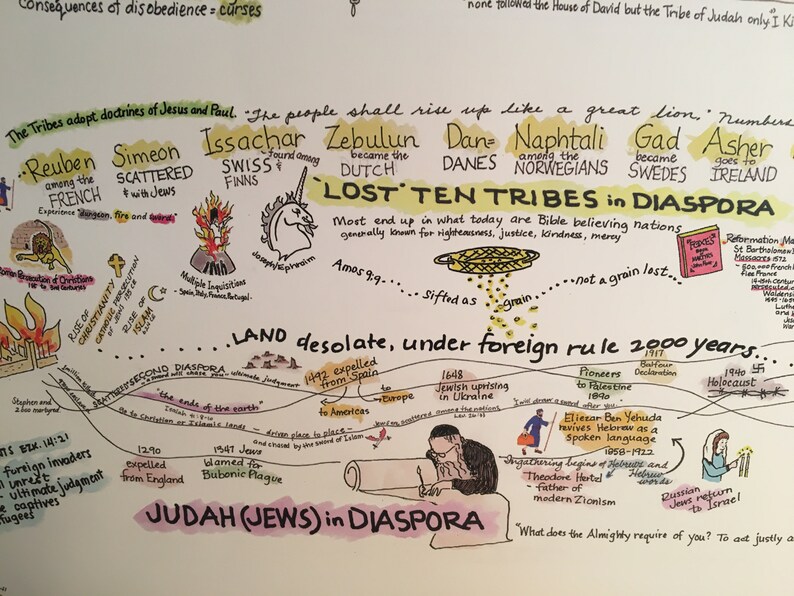 Consequences of disobedience = curses
"none followed the House of David but the Tribe of Judah only." I Ki
The Tribes adopt doctrines of Jesus and Paul.
"The people shall rise up like a great lion," Numbers
Reuben
among the
FRENCH
Simeon
SCATTERED
& with Jews
Issachar
found among
SWISS &
FINNS
Zebulun
became the
DUTCH
Dan=
DANES
Naphtali
among the
NORWEGIANS
Gad
became
SWEDES
Asher
goes to
IRELAND
Experience "dungeon, fire and sword"
"LOST" TEN TRIBES in DIASPORA
Most end up in what today are Bible believing nations
generally known for righteousness, justice, kindness, mercy
Joseph/Ephraim
Roman Persecution of Christians
1st to 3rd Centuries
RISE OF
CHRISTIANITY
CATHOLIC PERSECUTION
OF JEWS
RISE OF
ISLAM
Multiple Inquisitions
- Spain, Italy, France, Portugal.
Amos 9:9... Sifted as grain ...not a grain lost...
Reformation Ma
St Bartholomew
Massacre 1572
French
flee France
persecuted
LAND desolate, under foreign rule 2000 years...
Stephen and
2,000 martyred
SECOND DIASPORA
ultimate judgment
"the ends of the earth"
Go to Christian or Islamic lands - driven place to place -
and chased by the sword of Islam
Jews scattered among the nations
1492 expelled
from Spain
to Americas
to Europe
1648
Jewish uprising
in Ukraine
Pioneers
to Palestine
1890
1917
Balfour
Declaration
1940
Holocaust
"I will draw a sword after you..."
Eliezar Ben Yehuda
revives Hebrew as a
spoken language
1858-1922
1290
expelled
from England
1347 Jews
blamed for
Bubonic Plague
Ingathering begins of Hebrews and
Hebrew words
Theodore Hertel
father of
modern Zionism
Russian
Jews return
to Israel
EZK. 14:21
foreign invaders
unrest
ultimate judgment
captives
JUDAH (JEWS) in DIASPORA
"What does the Almighty require of you? To act justly a